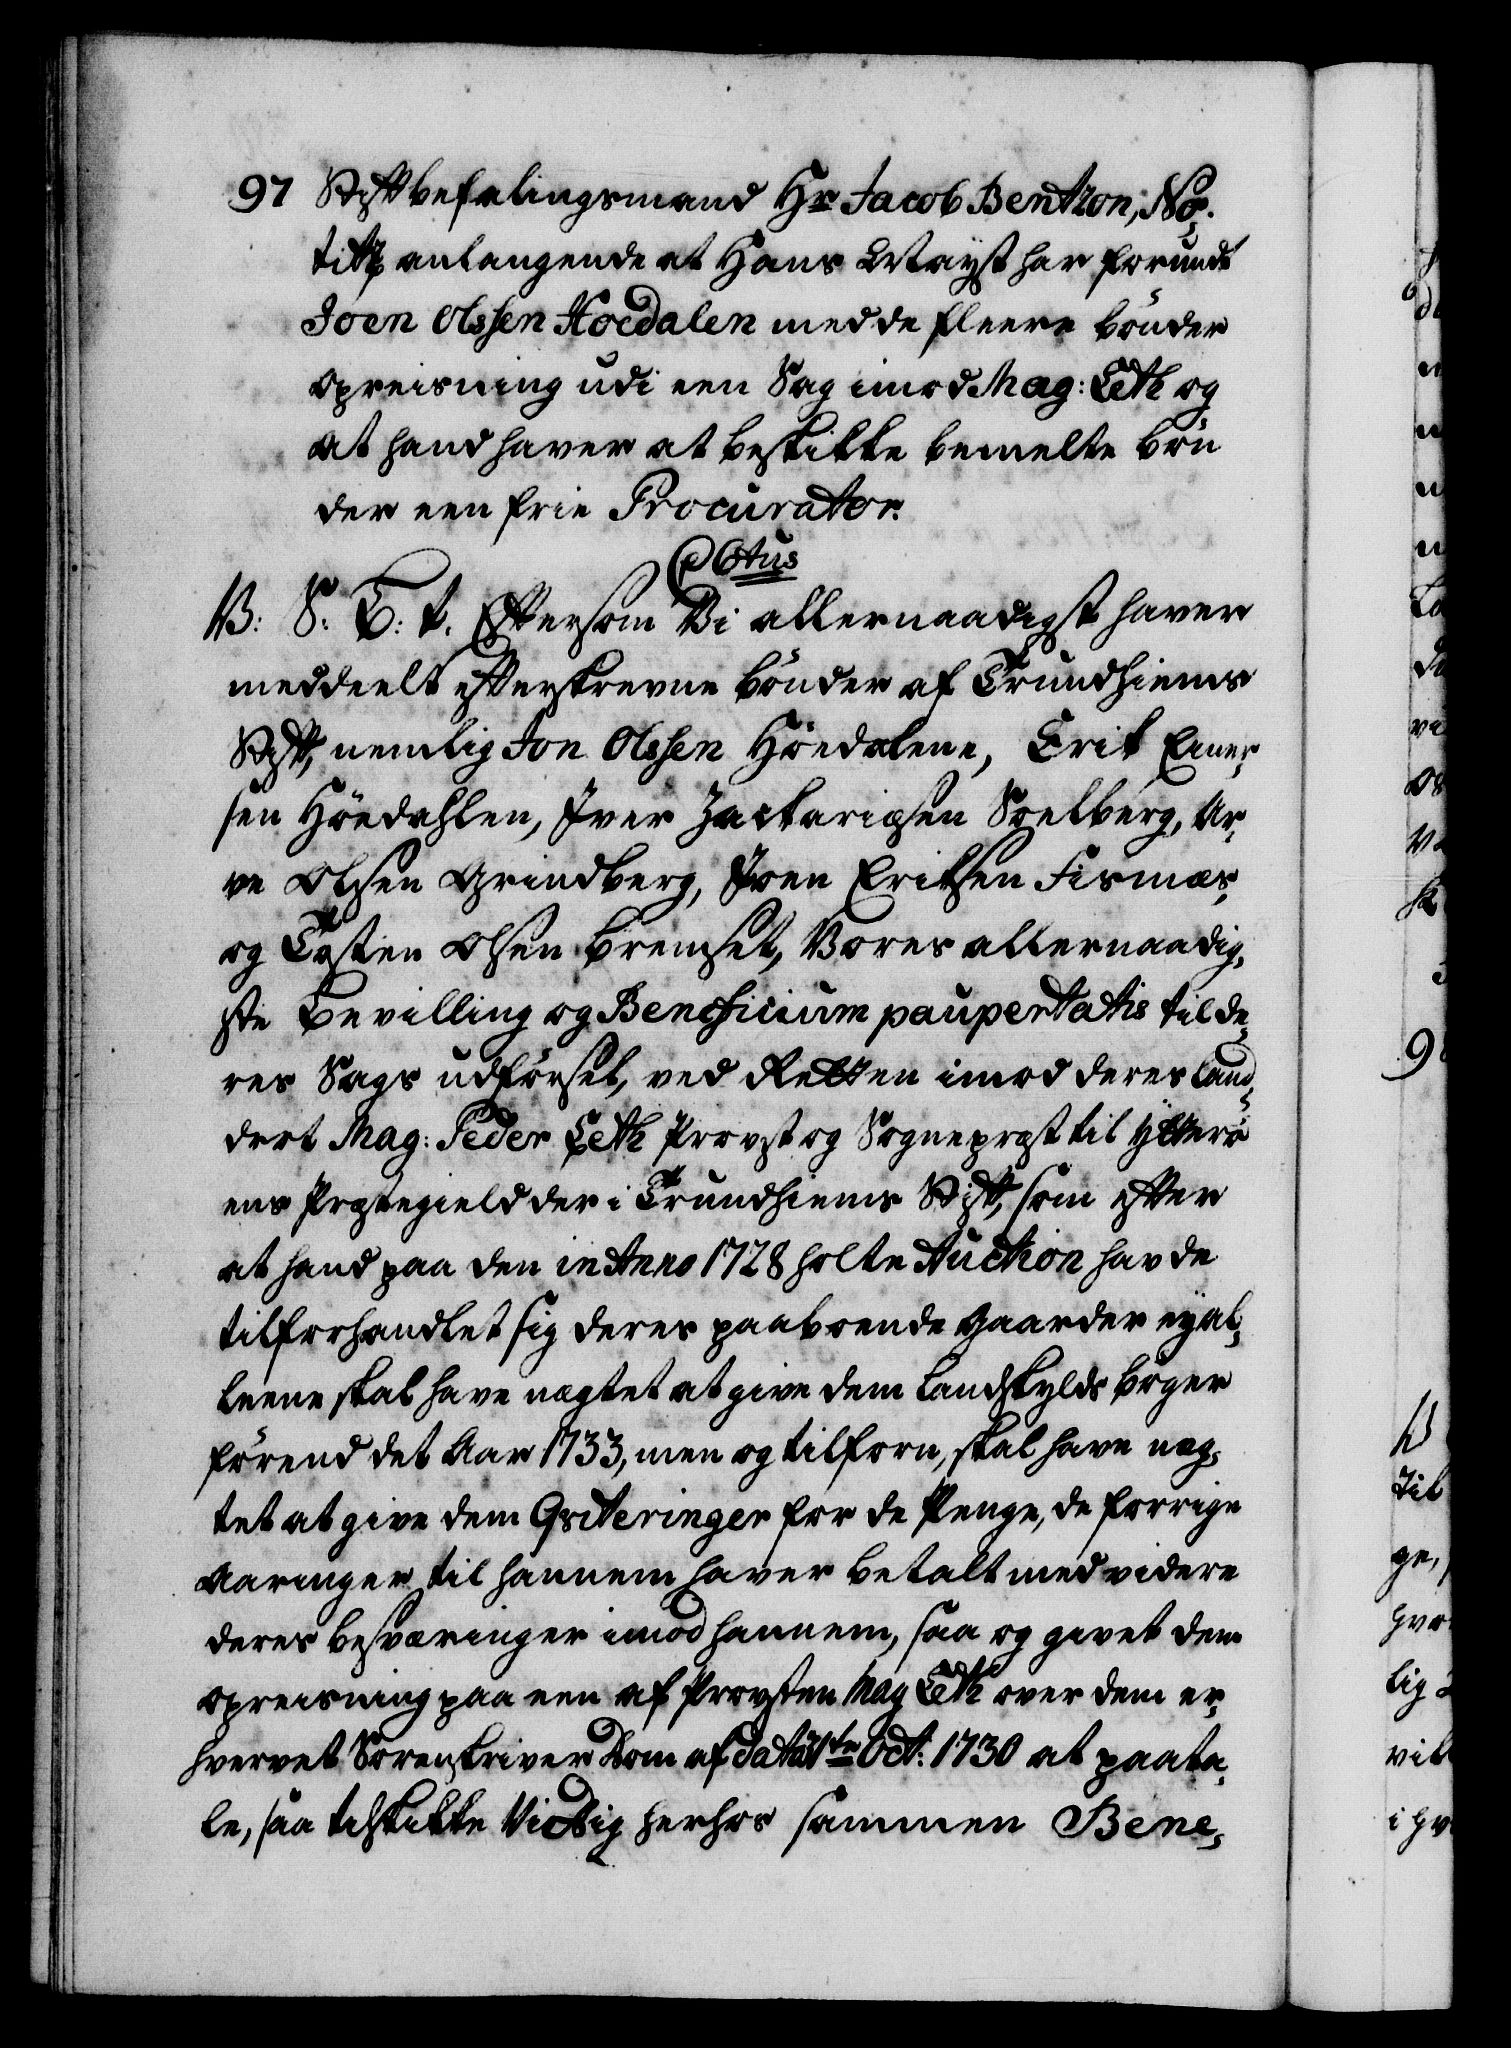 97 Stiftbefalingsmand Hr Jacob Bentzon, No,
titz anlangende at Hans Mayst har forundt
Joen Olssen Hoedalen med de fleere bönder
opreisning udi een Sag imod Mag: Leth og
at hand haver at beskikke bemelte bön
der een frie Procurator.
C6tus
W: G: T: t. Eftersom Vi allernaadigst haver
meddeelt efterskrevne bönder af Trundhiems
Stift, nemlig Jon Olssen Höedalene, Erik Einer,
sen Höedahlen, Iver Zackariasen Soelberg, Ar,
ve Olsen Grindberg, Joen Eriksen Fismær,
og Tosten Olsen Bremset, Vores allernaadig,
ste Bevilling og Beneficium paupertatis til de,
res Sags udförsel, ved Retten imod deres Land,
drot Mag: Peder Leth Provst og Sognepræst til Ytterö
ens Præstegield der i Trundhiems Stift, som efter
at hand paa den in Anno 1728 holte Auction havde
tilforhandlet sig deres paaboende Gaarder eyal,
leene skal have nægtet at give dem Landskylds böger
förend det Aar 1733, men og tilforn, skal have næg,
tet at give dem Qviteringer for de Penge, de forrige
Aaringer til hannem haver betalt med videre
deres besværinger imod hannem, saa og givet dem
opreisning paa een af Provsten Mag Leth over dem er,
hvervet Sorenskriver Dom af dato 1te Oct: 1730 at paata,
le, saa tilskikke Vi Dig herhos sammen Bene,